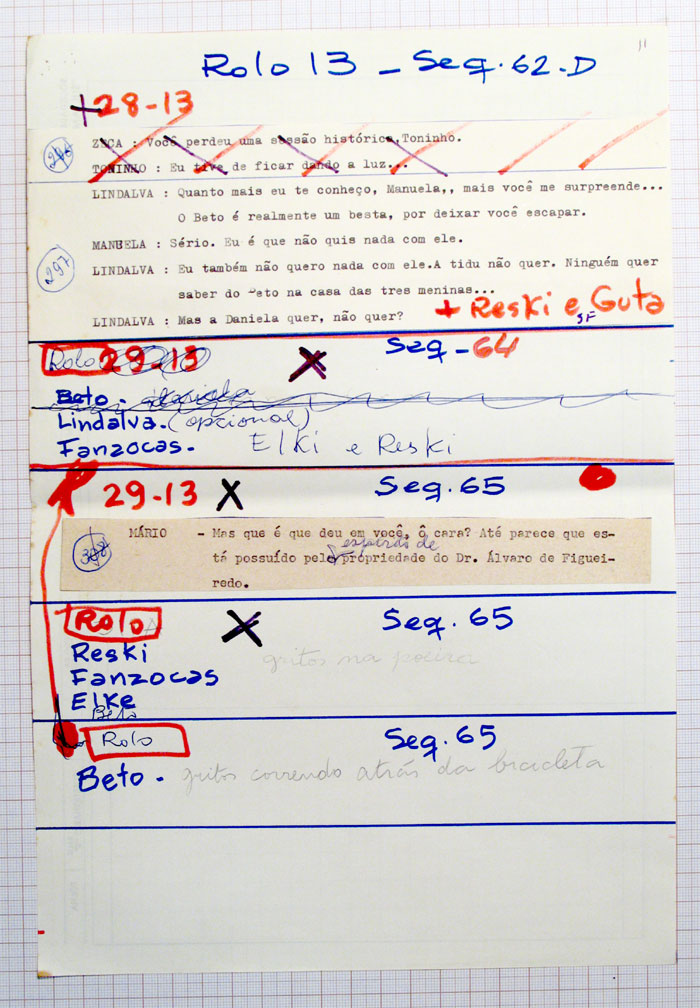 11
Rolo 13 - Seq. 62-D
+28-13
ZECA : Você perdeu uma sessão histórica,Toninho.
TONINHO : Eu tive de ficar dando a luz...
LINDALVA : Quanto mais eu te conheço, Manuela,, mais você me surpreende...
O Beto é realmente um besta, por deixar você escapar.
297
MANUELA : Sério. Eu é que não quis nada com ele.
LINDALVA : Eu também não quero nada com ele.A tidu não quer. Ninguém quer
saber do Beto na casa das tres meninas...
+ Reski e Guta
SF
LINDALVA : Mas a Daniela quer, não quer?
Rolo 29-13 X Seq-64
Beto.
Lindalva. (opcional)
Fanzocas. Elki e Reski
29-13 X Seq. 65
MÁRIO - Mas que é que deu em você, ô cara? Até parece que es-
tá possuído pelo propriedade do Dr. Álvaro de Figuei-
redo.
Rolo X Seq. 65
Reski
gritos na poeira
Fanzocas
Elke
Beto
Rolo Seq. 65
Beto. gritos correndo atrás da bicicleta